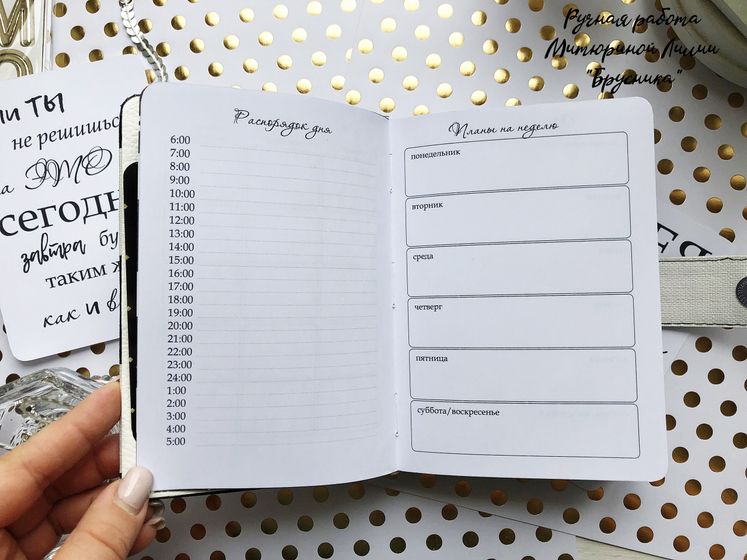 Ручная работа
Митюриной Лилии
"Брусника"
ТЫ
не решишься
ЭТО
сегодн
завтра бу
таким ж
как и в
Распорядок дня
6:00
7:00
8:00
9:00
10:00
11:00
12:00
13:00
14:00
15:00
16:00
17:00
18:00
19:00
20:00
21:00
22:00
23:00
24:00
1:00
2:00
3:00
4:00
5:00
Планы на неделю
понедельник
вторник
среда
четверг
пятница
суббота/воскресенье